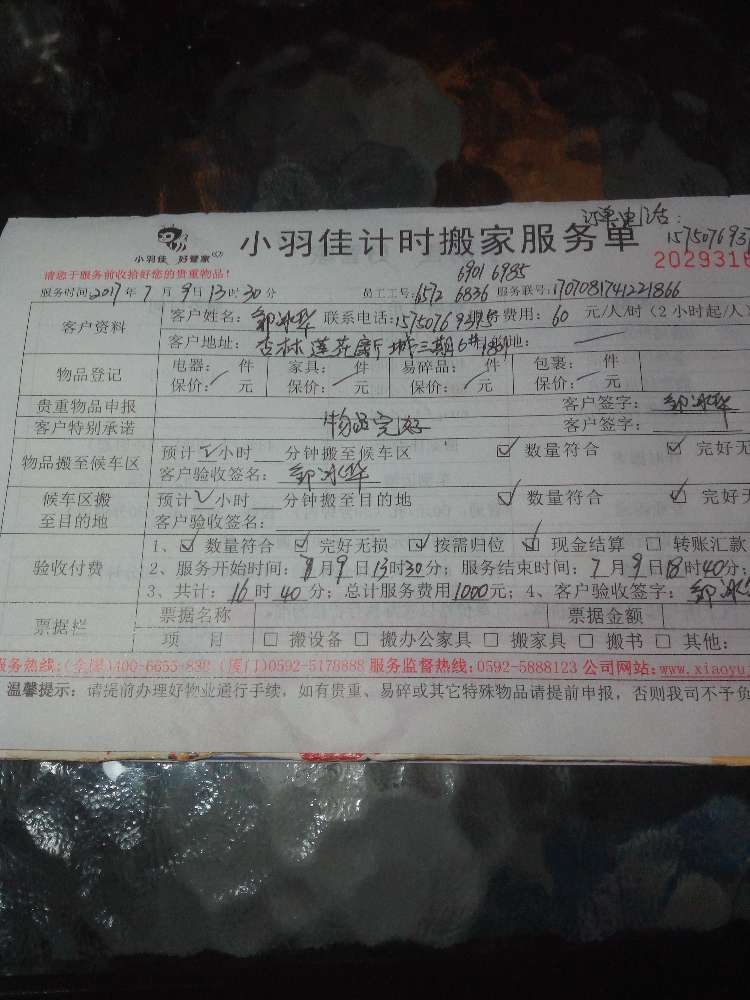 订单电话:
小羽佳 好管家
小羽佳计时搬家服务单
1575076937
请您于服务前收拾好您的贵重物品!
6901 6985
2029316
服务时间:2017年 7月 9日 13时 30分 员工工号:6572 6836 服务联号:1707081741221866
客户资料
客户姓名: 邹冰华 联系电话: 费用: 60 元/人/时 (2小时起/人)
客户地址: 杏林莲花 三期6#
物品登记
电器: 件 家具: 件 易碎品: 件 包裹: 件
保价: 元 保价: 元 保价: 元 保价: 元
贵重物品申报 客户签字: 邹冰华
客户特别承诺 物品完好 客户签字:
物品搬至候车区
预计 小时 分钟搬至候车区 ☑ 数量符合 ☑ 完好无
客户验收签名: 邹冰华
候车区搬至目的地
预计 小时 分钟搬至目的地 ☑ 数量符合 ☑ 完好无
客户验收签名:
验收付费
1、☑ 数量符合 ☑ 完好无损 ☑ 按需归位 ☑ 现金结算 □ 转账汇款
2、服务开始时间: 月9日13时30分; 服务结束时间: 7月9日18时40分;
3、共计: 16时40分; 总计服务费用1000元; 4、客户验收签字: 邹冰
票据栏
票据名称 票据金额
项 目 □ 搬设备 □ 搬办公家具 □ 搬家具 □ 搬书 □ 其他:
服务热线:(全国)400-6655-832 (厦门)0592-5179888 服务监督热线:0592-5888123 公司网站:www.xiaoyu
温馨提示: 请提前办理好物业通行手续,如有贵重、易碎或其它特殊物品请提前申报,否则我司不予负